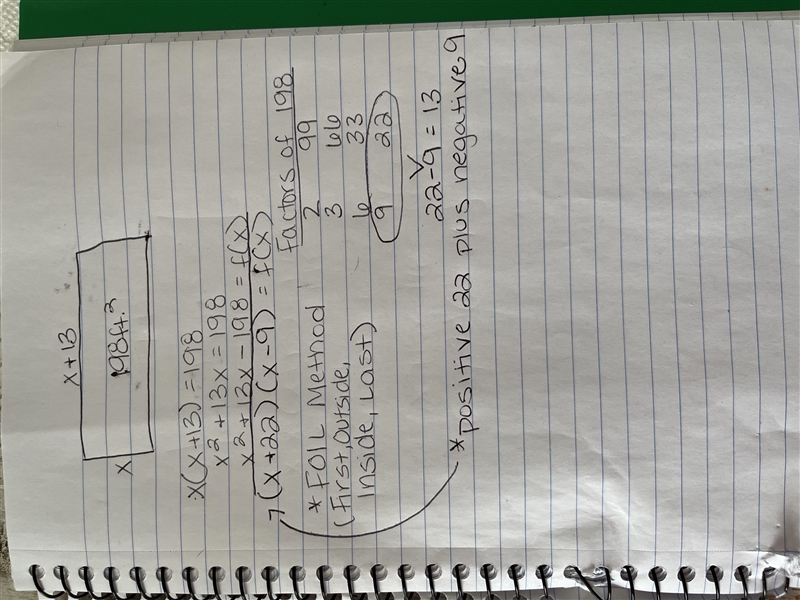 x+13
x
198ft.²
x(x+13)=198
x²+13x=198
x²+13x-198=f(x)
(x+22)(x-9)=f(x)
*FOIL Method
(First, Outside,
Inside, Last)
Factors of 198
2 99
3 66
6 33
9 22
22-9=13
*positive 22 plus negative 9